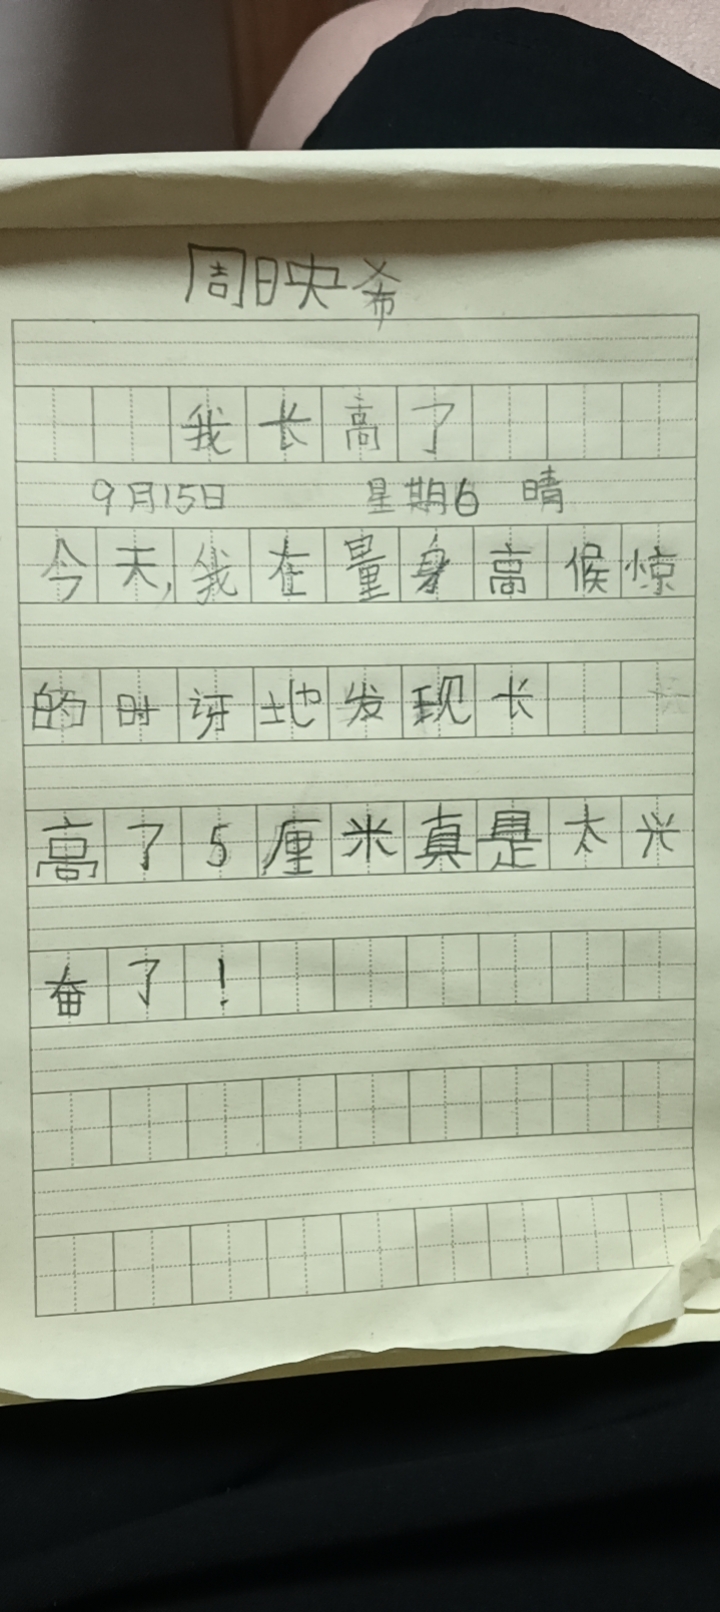 周映希
我长高了
9月15日 星期6 晴
今天,我在量身高候惊
的时讶地发现长
高了5厘米真是太兴
奋了!